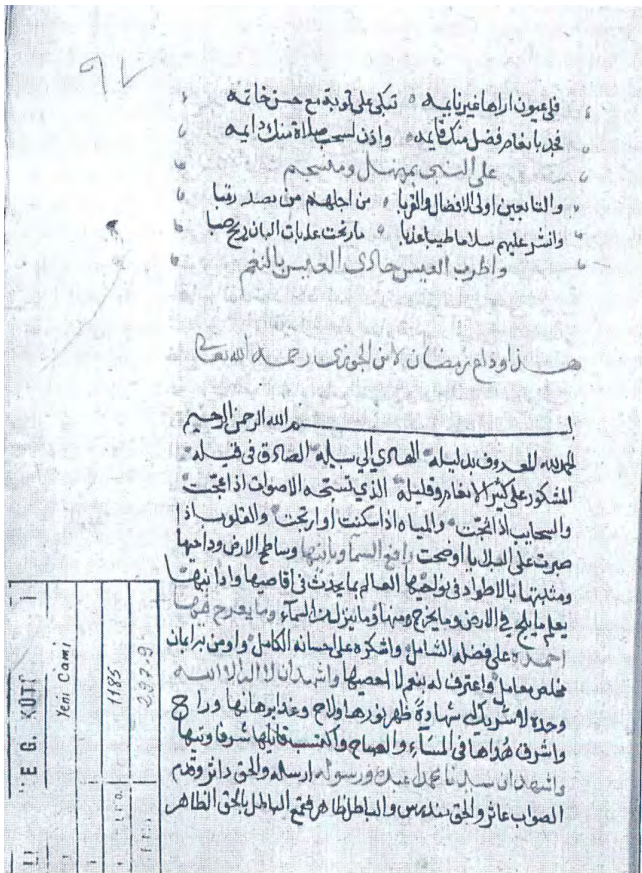 ٩٧
فلي عيون اراها غير نايمه تبكي على توبة مع حسن خاتمه
فجد بانعام فضل منك قايمه واذن لسحب صلاة منك دايمه
على النبي بمنهل ومنسجم
والتابعين اولى الافضال والقربا من اجلهم من
وانشر عليهم سلاما طيبا عذبا ما رنحت عذبات البان ريح صبا
واطرب العيس حادى العيس بالنغم
هذا وداع رمضان لابن الجوزى رحمه الله تعالى
بسم الله الرحمن الرحيم
الحمد لله المعروف بدليله الهادي الي سبيله الصادق في قيله
المشكور على كثير الانعام وقليله الذي تسبحه الاصوات اذا عجت
والسحايب اذا ثجت والمياه اذا سكنت أو ارتجت والقلوب اذا
صبرت على البلايا أو ضجت رافع السمآ وبانيها وساطح الارض وداحيها
ومثبتها بالاطواد في نواحيها العالم بما يحدث في أقاصيها وادانيها
يعلم ما يلج في الارض وما يخرج منها وما ينزل من السمآء وما يعرج فيها
احمده على فضله الشامل واشكره على احسانه الكامل واومن به ايمان
مخلص معامل واعترف له بنعم لا احصيها واشهد ان لا اله الا الله
وحده لا شريك له شهادة ظهر نورها ولاح وغدا برهانها وراح
واشرف هداها في المسآء والصباح واكتسب قايلها شرفا وتيها
واشهد ان سيدنا محمدا عبده ورسوله ارسله والحق داثر وقدم
الصواب عاثر والحق مندرس والباطل ظاهر فقمع الباطل بالحق الظاهر
E G. KÜTÜ
Yeni Cami
1185
297.9